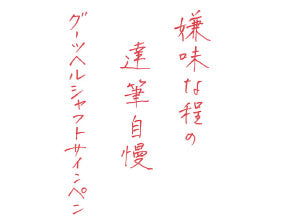 嫌味な程の
達筆自慢
グーツヘルシャフトサインペン